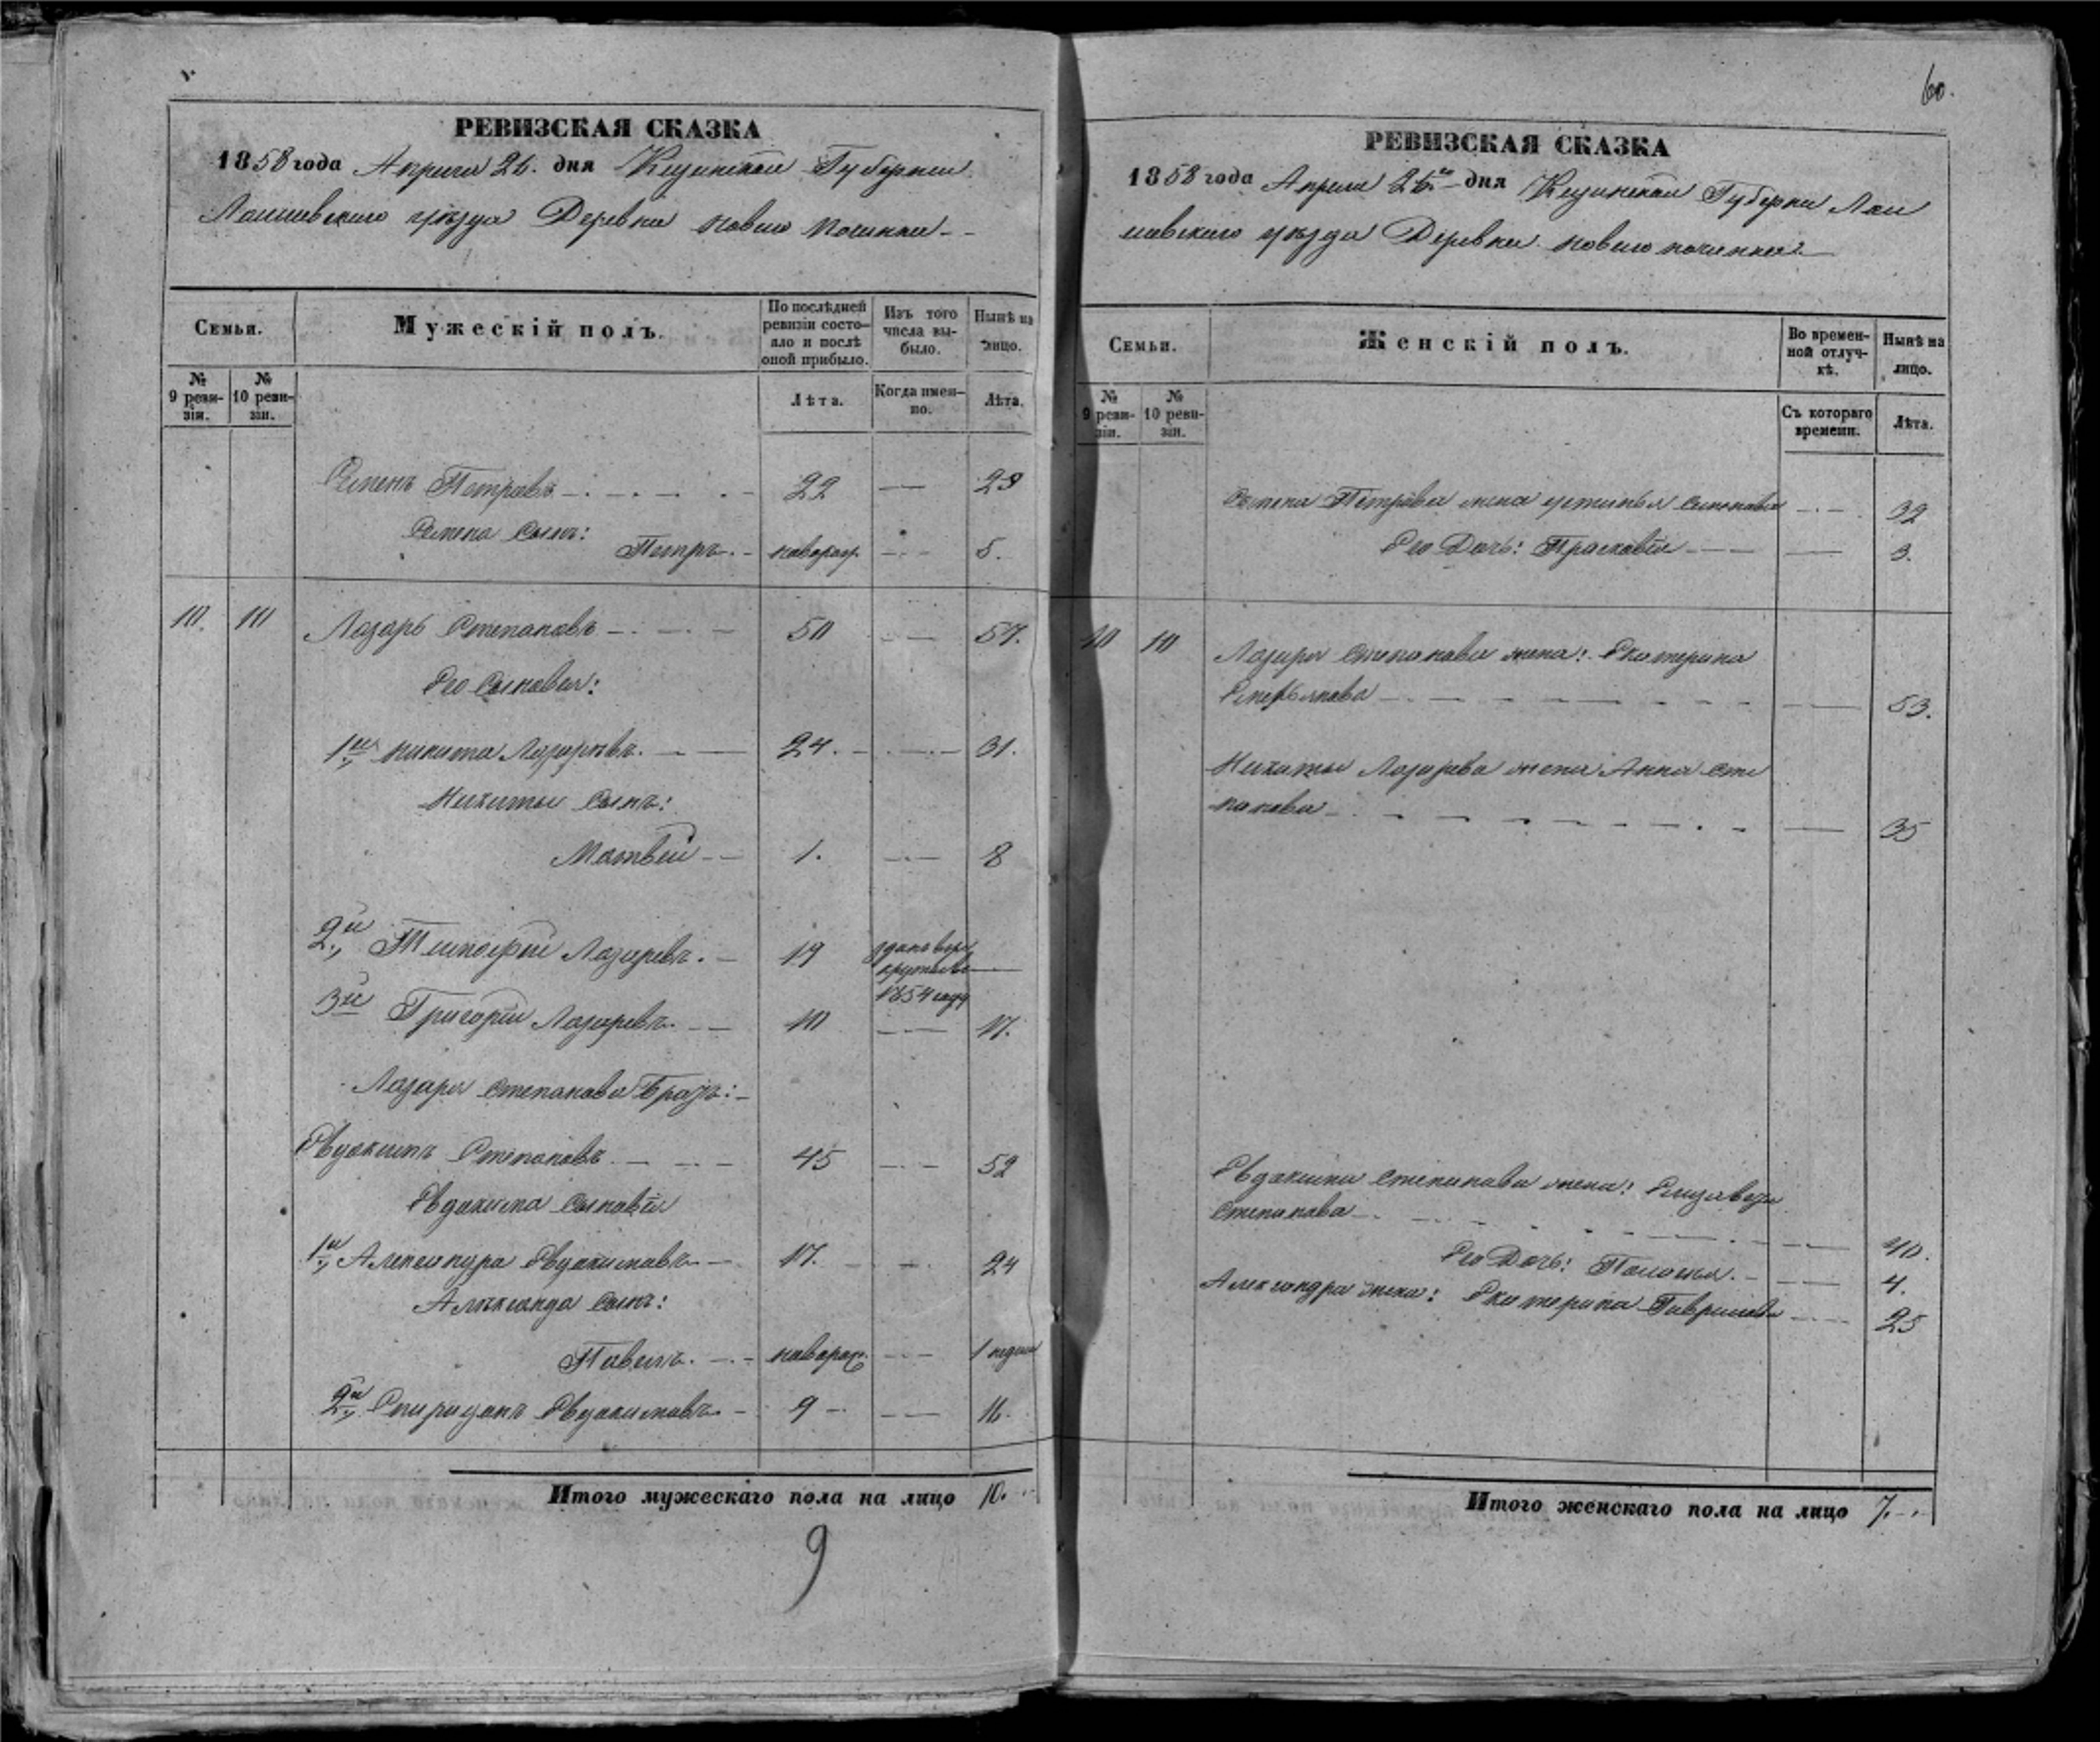 60.
РЕВИЗСКАЯ СКАЗКА
1858 года Апреля 26. дня Казанской Губернии
Лаишевскаго уѣзда Деревни Новаго Починка
Семьи.
Мужескій полъ.
По послѣдней ревизіи состояло и послѣ оной прибыло.
Изъ того числа выбыло.
Нынѣ на лицо.
№ 9 ревизіи.
№ 10 ревизіи.
Лѣта.
Когда именно.
Лѣта.
Семенъ Петровъ 22 29
Семена сынъ:
Петръ новорож. 5.
10. 10 Лазарь Степановъ 50 57.
Его сыновья:
1й Никита Лазаревъ. 24. 31.
Никиты сынъ:
Матвѣй 1. 8
2й Тимофѣй Лазаревъ. 19 зданъ въ рекруты въ 1854 году
3й Григорій Лазаревъ 10 17.
Лазаря Степанова братъ:
Евдокимъ Степановъ 45 52
Евдокима сыновья
1й Александра Евдокимовъ 17. 24
Александра сынъ:
Павелъ. новорож. 1 недели
2й Спиридонъ Евдокимовъ 9 16.
Итого мужескаго пола на лицо 10.
9
РЕВИЗСКАЯ СКАЗКА
1858 года Апреля 26го дня Казанской Губернии Лаи
шевскаго уѣзда Деревни Новаго починка
Семьи.
Женскій полъ.
Во временной отлучкѣ.
Нынѣ на лицо.
№ 9 ревизіи.
№ 10 ревизіи.
Съ котораго времени.
Лѣта.
Семена Петрова жена Устинья Семенова 32
Его дочь: Прасковья 3.
10 10 Лазаря Степанова жена: Екатерина
Емельянова 53.
Никиты Лазарева жена Анна Сте
панова 35
Евдокима Степанова жена: Елизавета
Степанова 40.
Его дочь: Палагея. 4.
Александра жена: Екатерина Гаврилова 25
Итого женскаго пола на лицо 7.